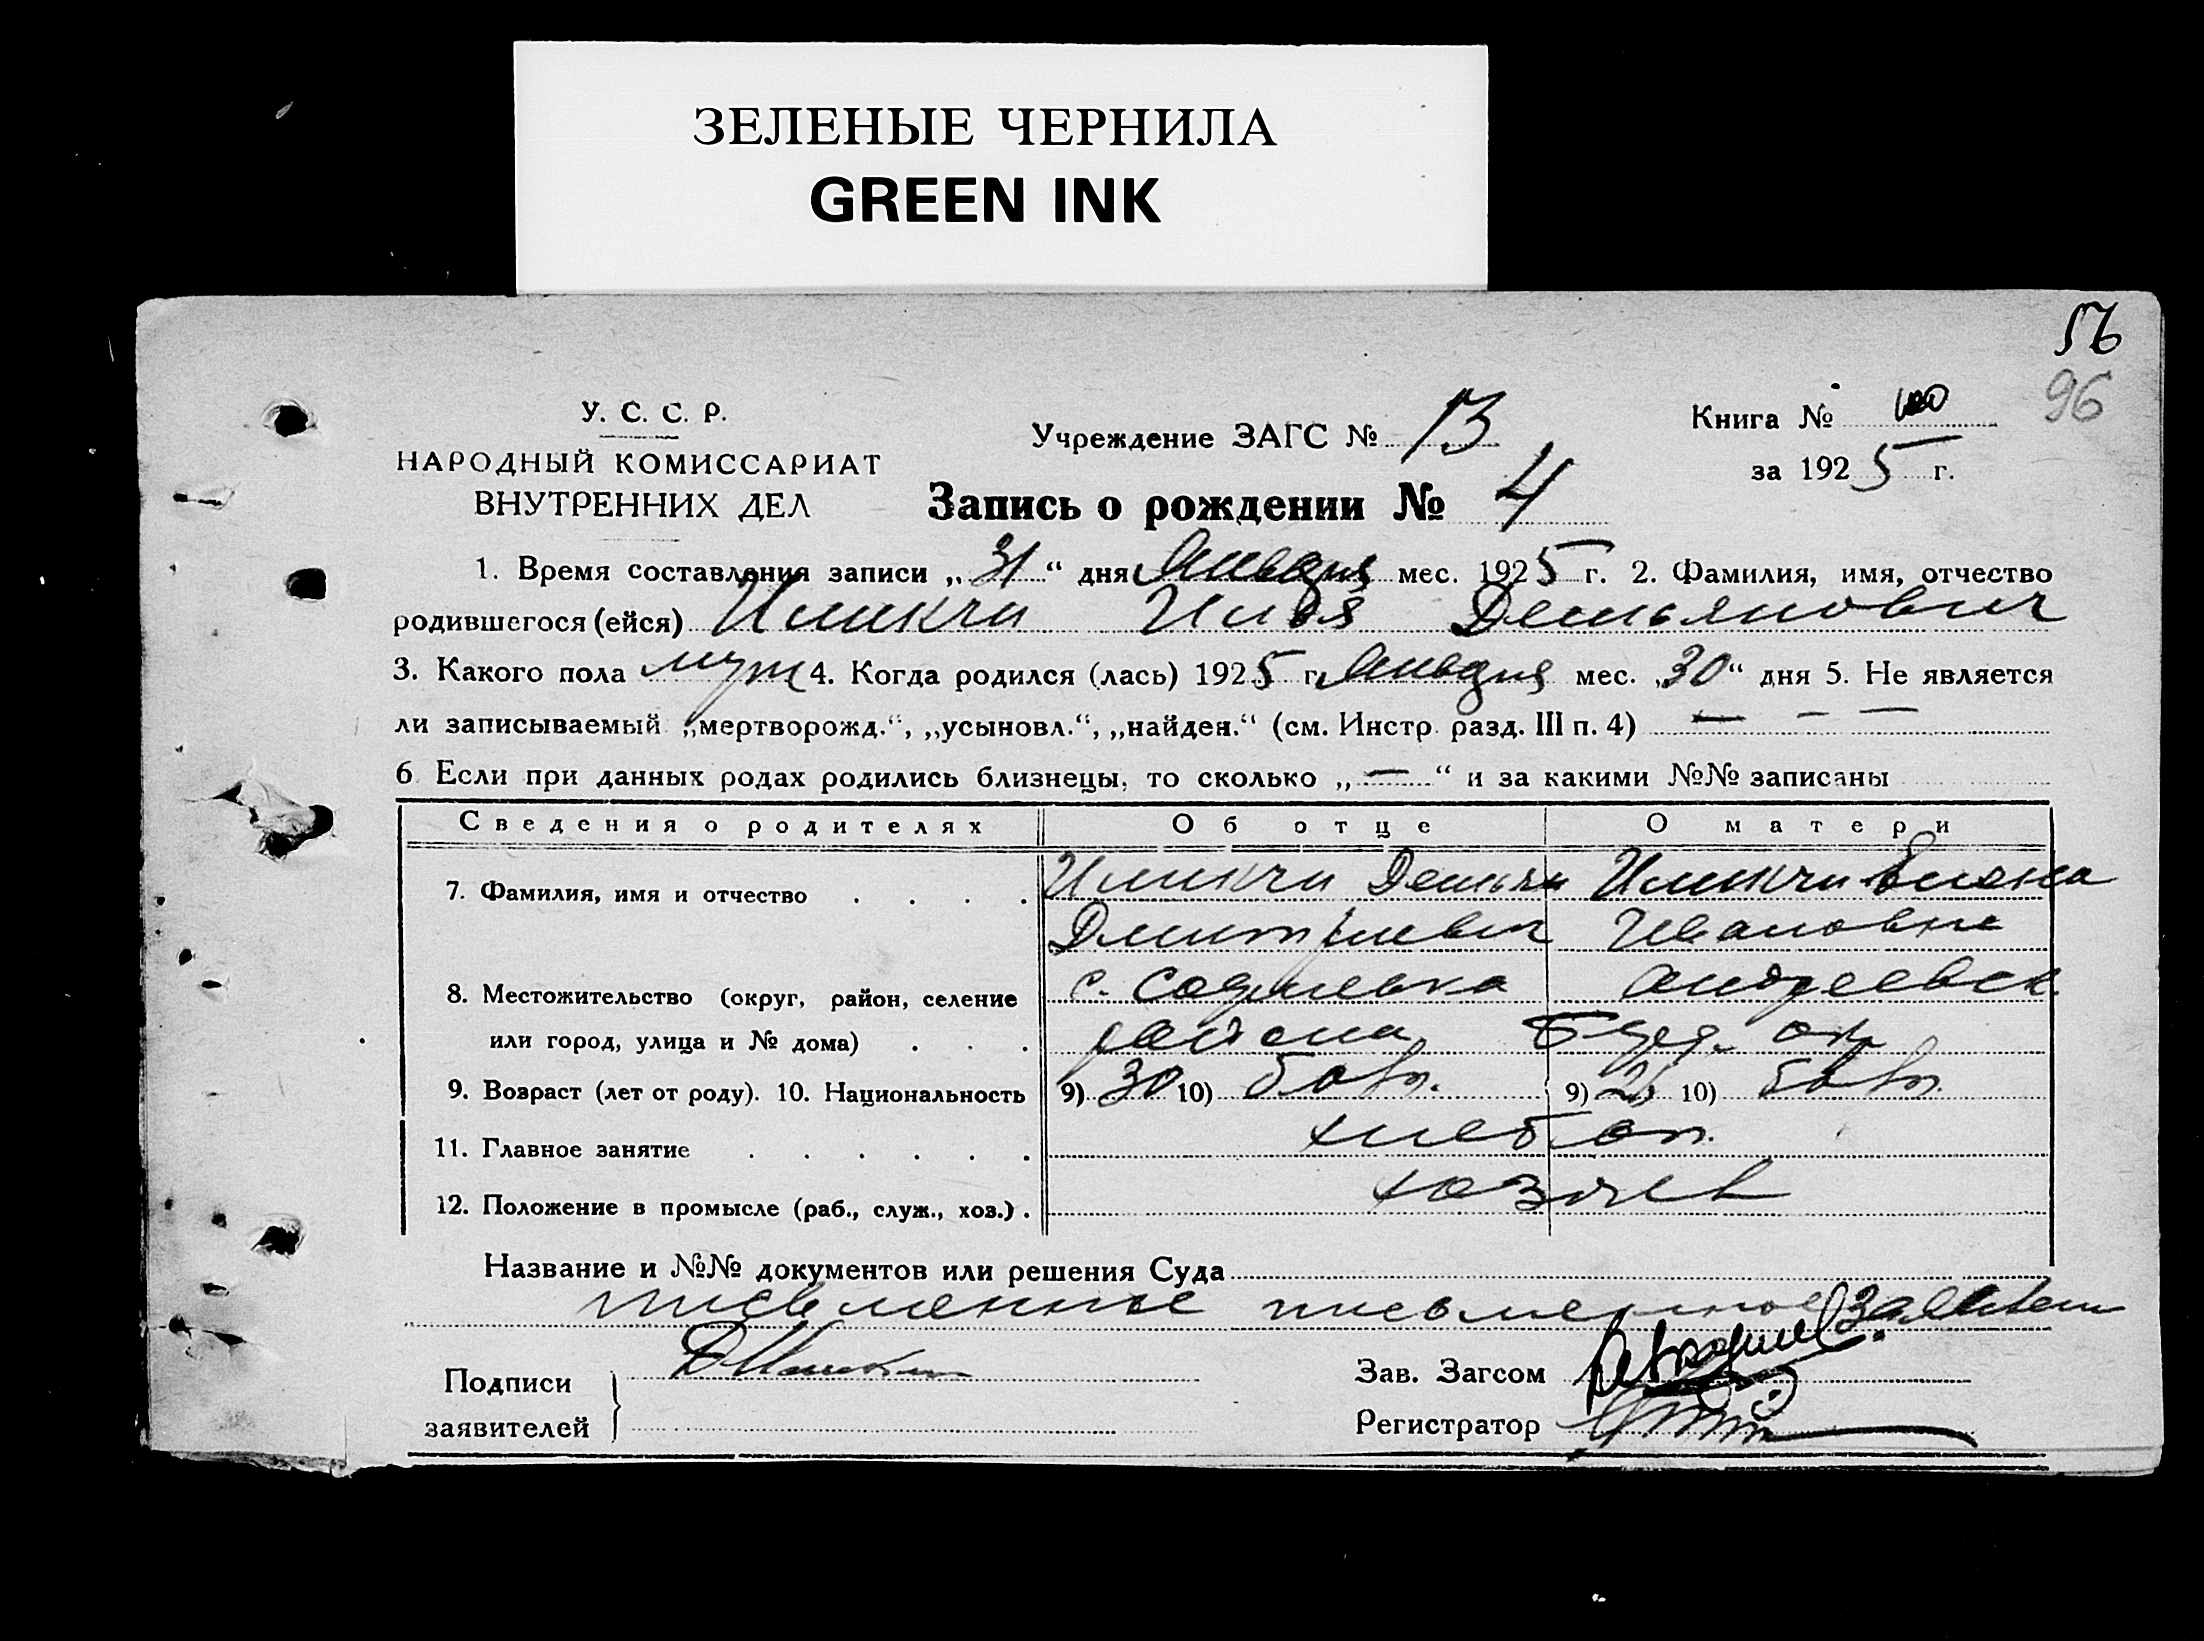 ЗЕЛЕНЫЕ ЧЕРНИЛА
GREEN INK
56
96
У. С. С. Р.
НАРОДНЫЙ КОМИССАРИАТ
ВНУТРЕННИХ ДЕЛ
Учреждение ЗАГС № 13
Книга №
за 1925 г.
Запись о рождении № 4
1. Время составления записи „31“ дня Января мес. 1925 г. 2. Фамилия, имя, отчество
родившегося (ейся) Иликчи Илья Демьянович
3. Какого пола муж 4. Когда родился (лась) 1925 г. Января мес. „30“ дня 5. Не является
ли записываемый „мертворожд.“, „усыновл.“, „найден.“ (см. Инстр. разд. III п. 4) — — —
6. Если при данных родах родились близнецы, то сколько „—“ и за какими №№ записаны
Сведения о родителях Об отце О матери
7. Фамилия, имя и отчество Иликчи Демьян Иликчи Елена
Дмитриевич Ивановна
8. Местожительство (округ, район, селение с. Андреевск.
или город, улица и № дома) района ок.
9. Возраст (лет от роду). 10. Национальность 9) 30 10) болг. 9) 10) болг.
11. Главное занятие хлебоп.
12. Положение в промысле (раб., служ., хоз.) хозяев
Название и №№ документов или решения Суда
письменное письменное заявлен
Подписи
заявителей
Зав. Загсом
Регистратор